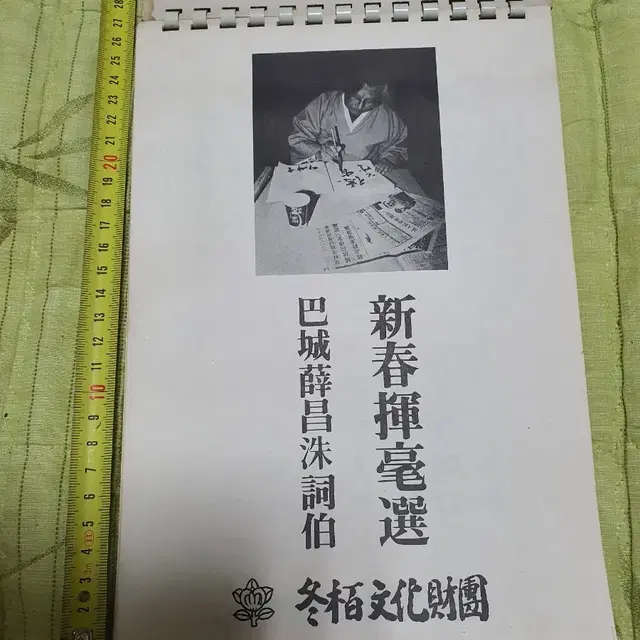 新春揮毫選
巴城薛昌洙詞伯
冬栢文化財團